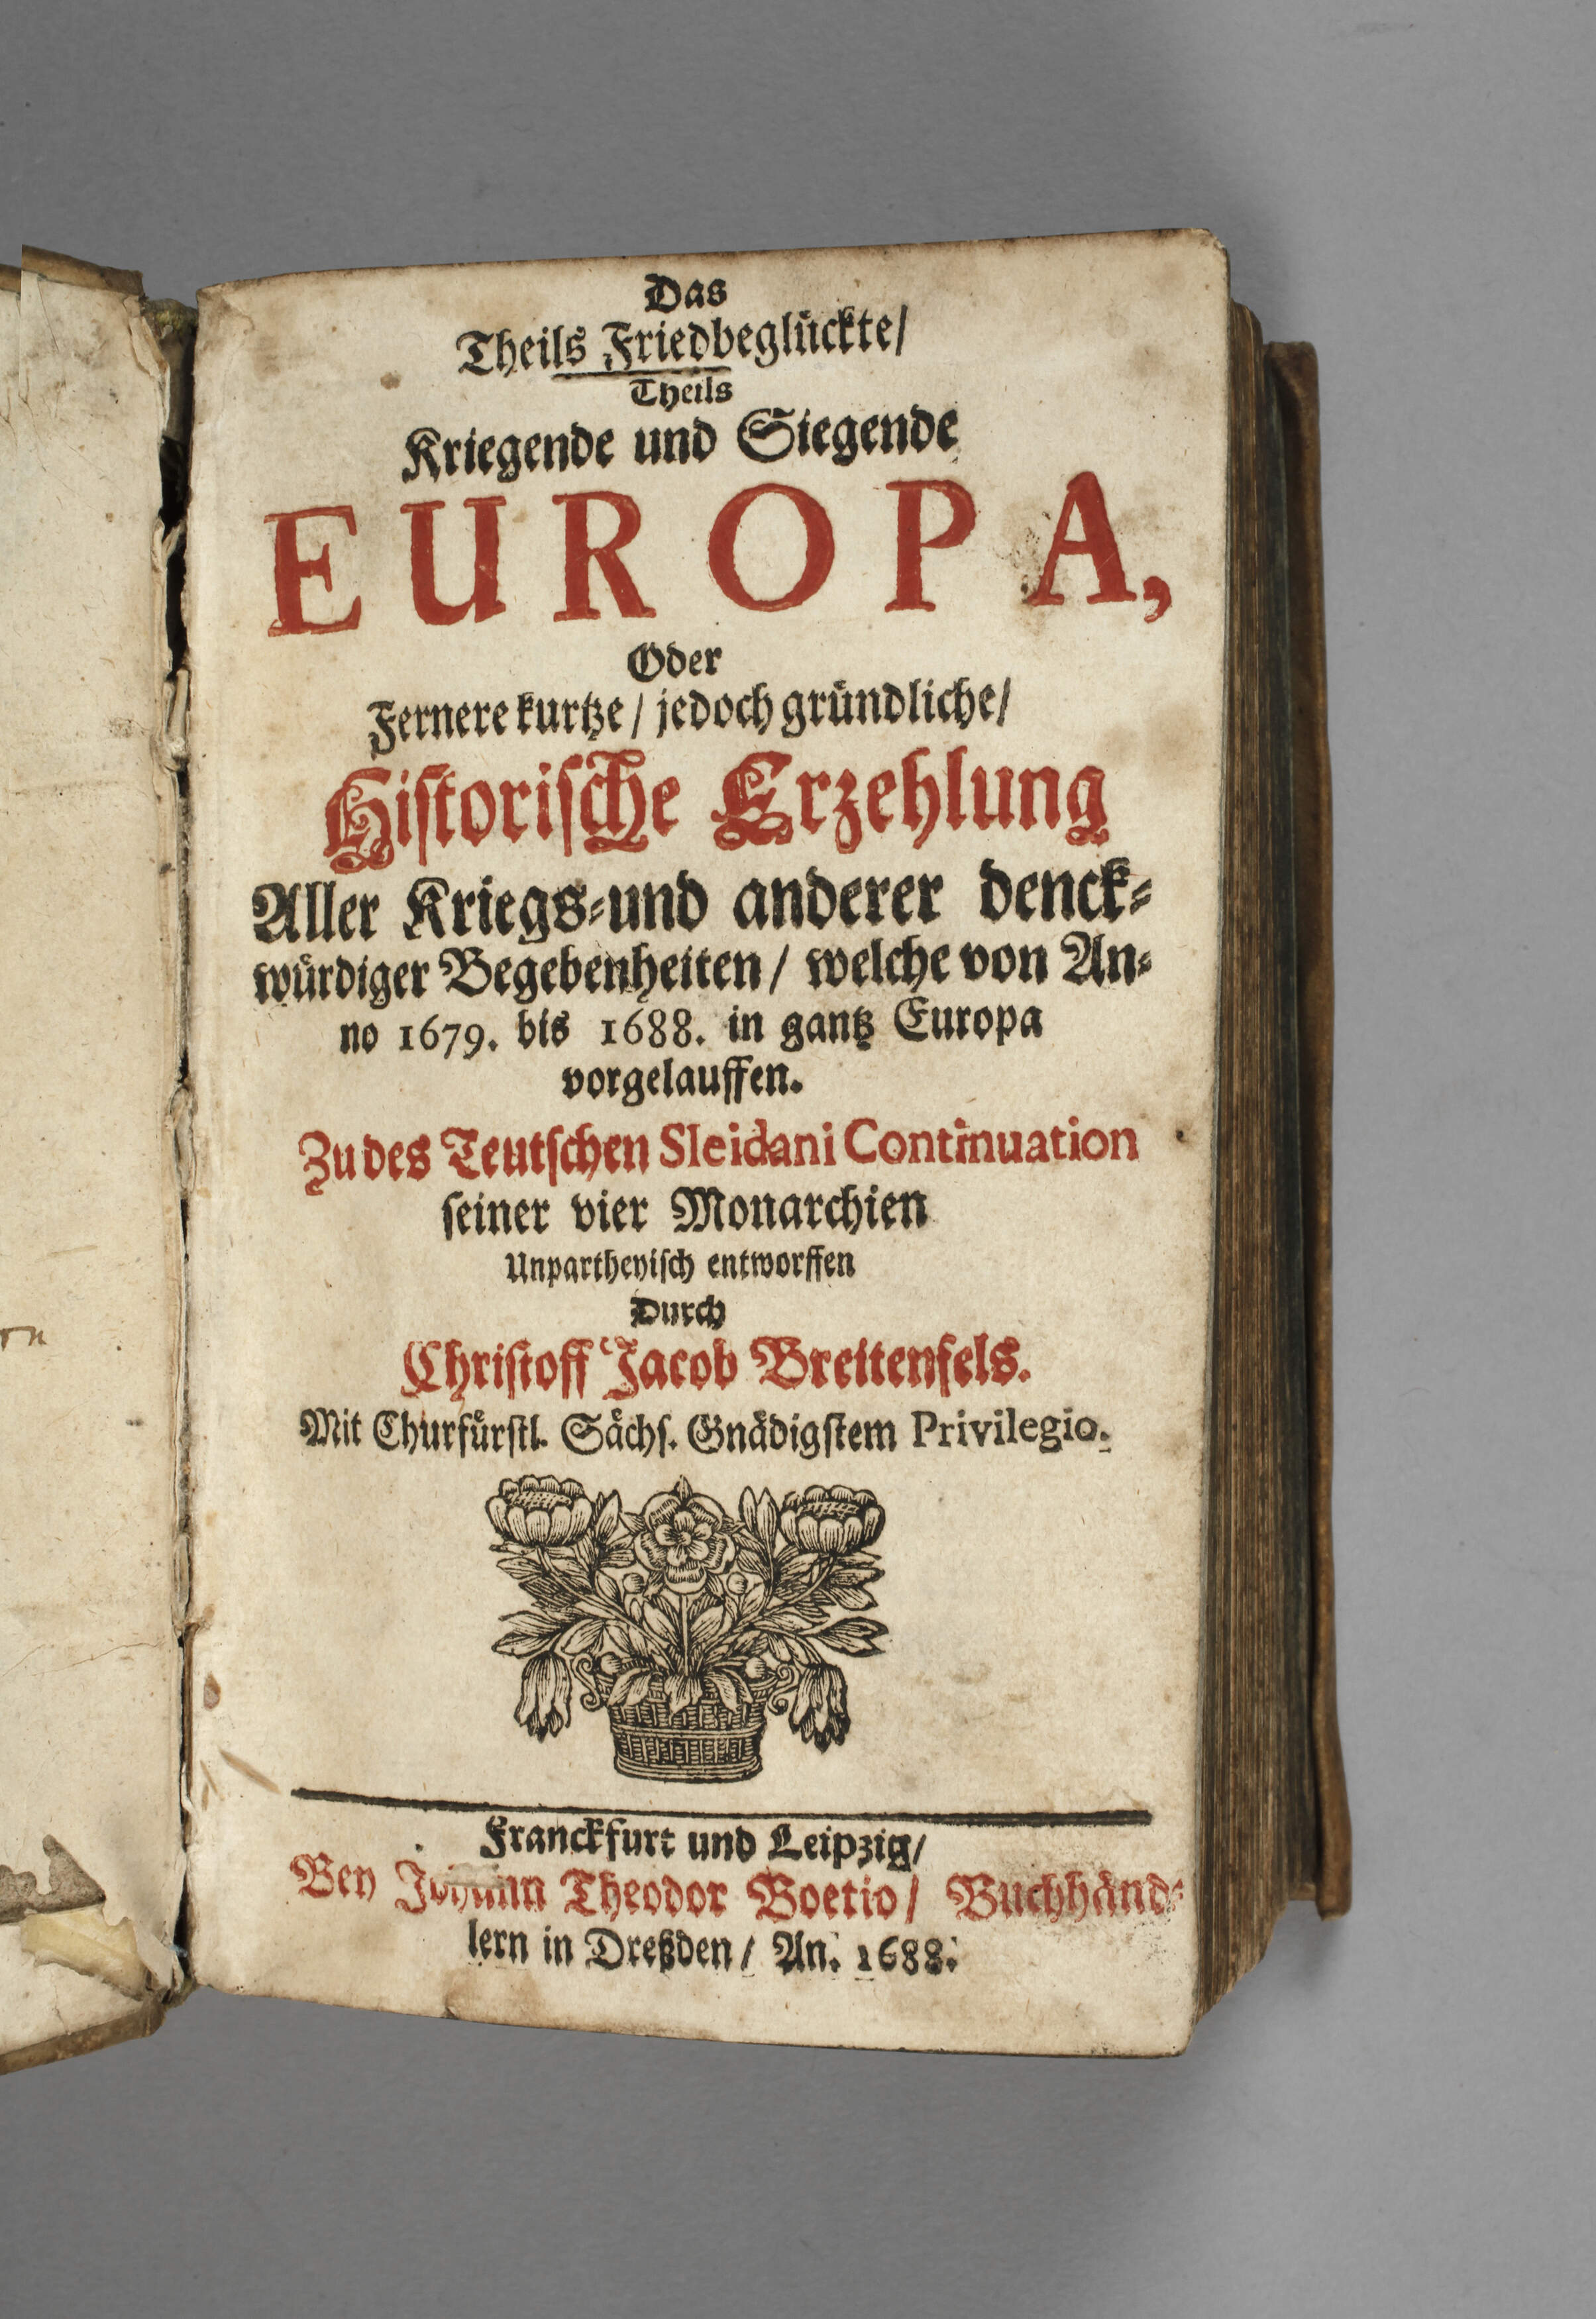 Das
Theils Friedbeglückte/
Theils
Kriegende und Siegende
EUROPA,
Oder
Fernere kurtze / jedoch gründliche/
Historische Erzehlung
Aller Kriegs-und anderer denck-
würdiger Begebenheiten / welche von An-
no 1679. bis 1688. in gantz Europa
vorgelauffen.
Zu des Teutschen Sleidani Continuation
seiner vier Monarchien
Unpartheyisch entworffen
Durch
Christoff Jacob Breitenfels.
Mit Churfürstl. Sächs. Gnädigstem Privilegio.
Franckfurt und Leipzig/
Bey Johann Theodor Boetio / Buchhänd-
lern in Dreßden / An. 1688.